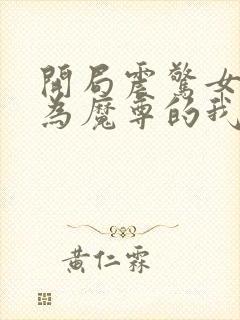 開局震驚女
為魔尊的我
黃仁霖